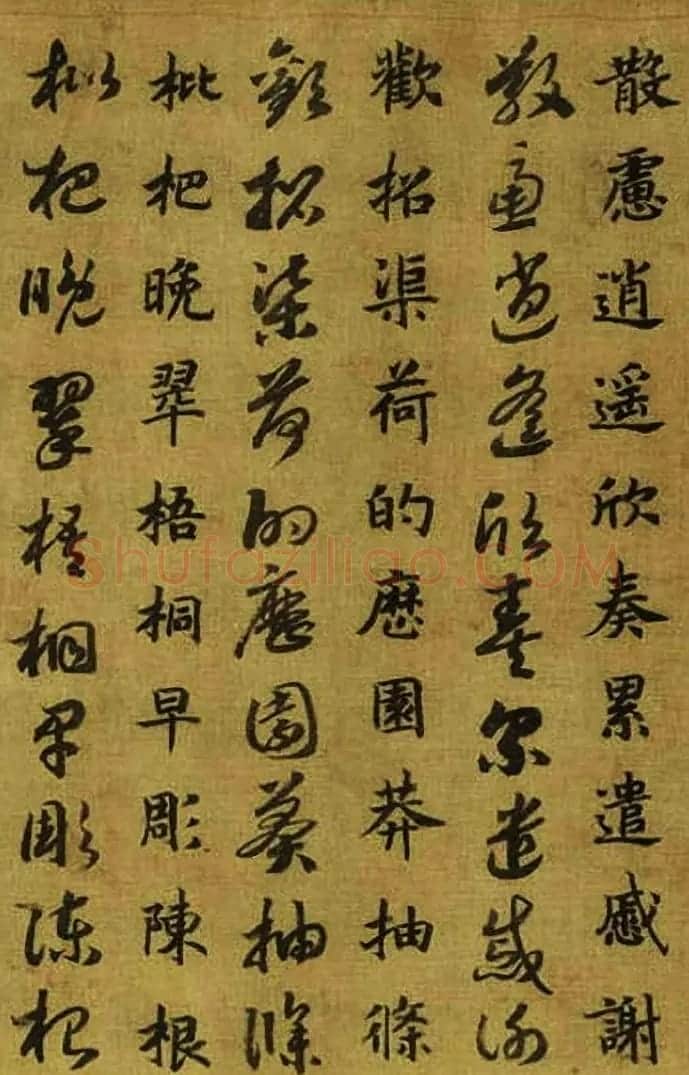 散慮逍遥欣奏累遣慼謝
散慮逍遥欣奏累遣慼謝
歡招渠荷的歷園莽抽條
歡招渠荷的歷園莽抽條
枇杷晚翠梧桐早彫陳根
枇杷晚翠梧桐早彫陳根
Shufaziliao.COM